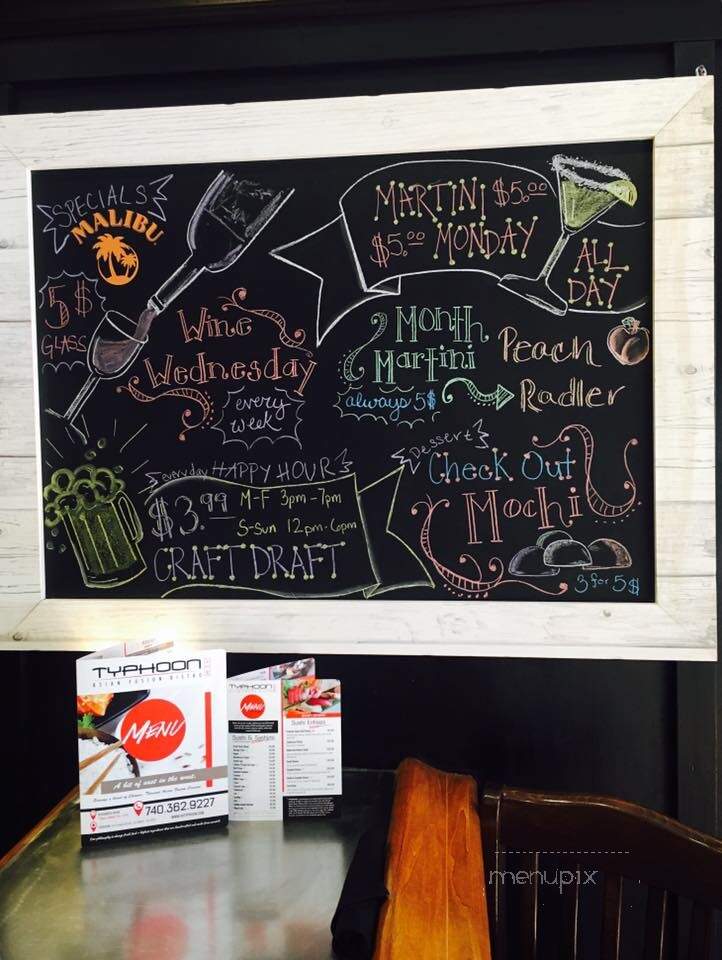 SPECIALS
MALIBU
5$
GLASS
Wine
Wednesday
every
week
MARTINI $5.00
$5.00 MONDAY
ALL
DAY
Month
Martini
always 5$
Peach
Radler
everyday HAPPY HOUR
$3.99
M-F 3pm-7pm
S-Sun 12pm-6pm
CRAFT DRAFT
Dessert
Check Out
Mochi
3 for 5$
TYPHOON
ASIAN FUSION BISTRO
MENU
A bit of east in the west.
740.362.9227
TYPHOON
MENU
Sushi & Sashimi
Sushi Entrees
menupix